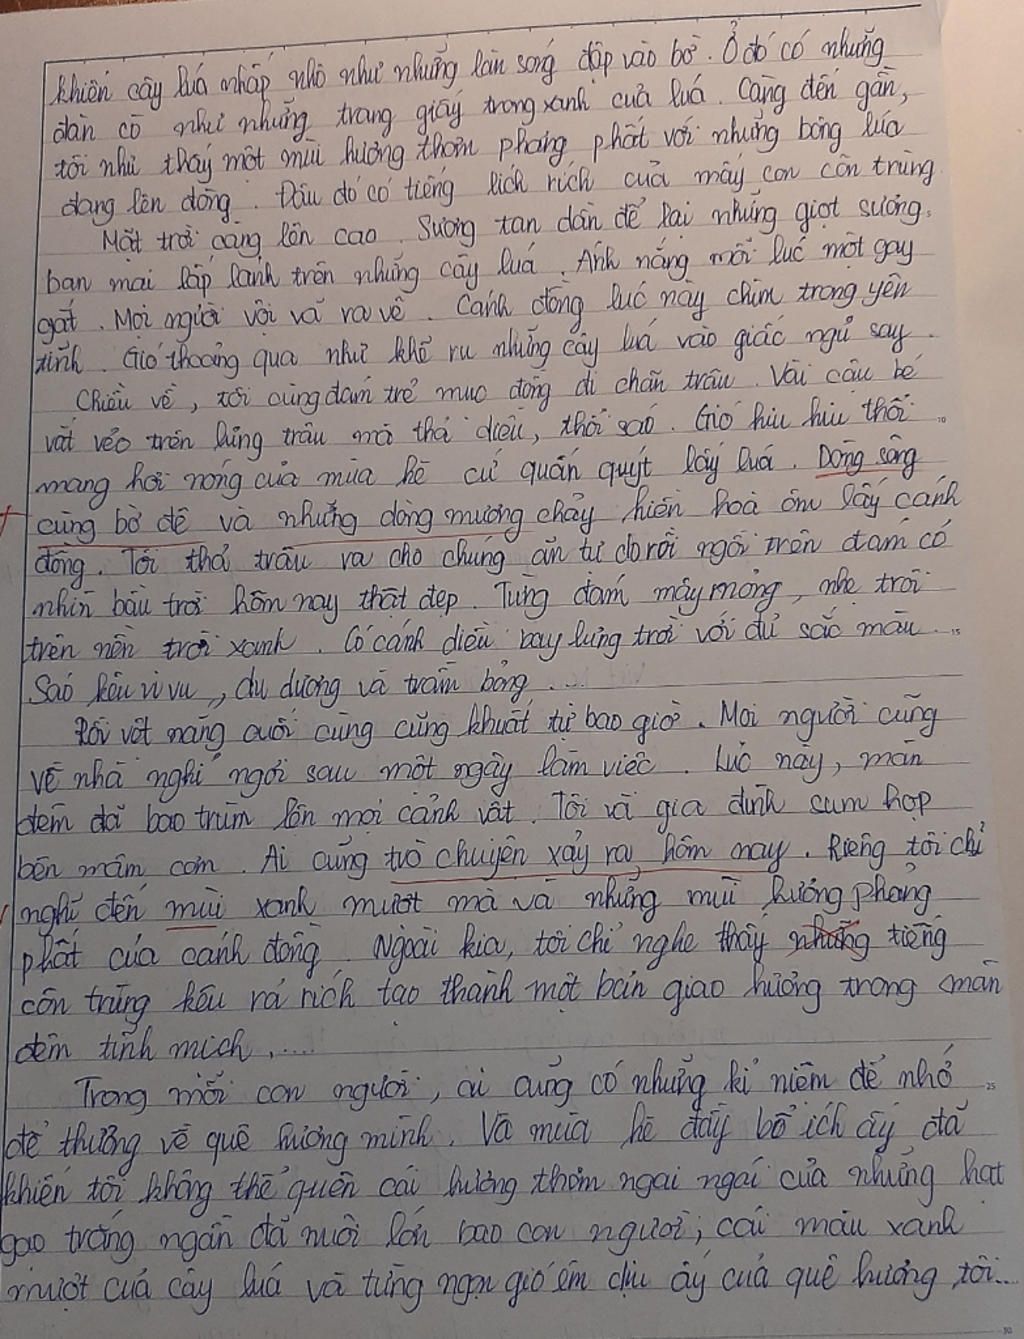 khiến cây lúa nhấp nhô như những làn sóng đập vào bờ. Ở đó có những
đàn cò như những trang giấy trong xanh của lúa. Càng đến gần,
tôi như thấy một mùi hương thơm phang phất với những bông lúa
đang lên đòng. Đâu đó có tiếng lích rích của mấy con côn trùng.
Mặt trời càng lên cao. Sương tan dần để lại những giọt sương
ban mai lấp lánh trên những cây lúa. Ánh nắng mỗi lúc một gay
gắt. Mọi người vội vã ra về. Cánh đồng lúc này chìm trong yên
tĩnh. Gió thoảng qua như khẽ ru những cây lúa vào giấc ngủ say.
Chiều về, tôi cùng đám trẻ mục đồng đi chăn trâu. Vài cậu bé
vắt vẻo trên lưng trâu mà thả diều, thổi sáo. Gió hiu hiu thổi 10
mang hơi nóng của mùa hè cứ quấn quýt lấy lúa. Dòng sông
cùng bờ đê và những dòng mương chảy hiền hoà ôm lấy cánh
đồng. Tôi thả trâu ra cho chúng ăn tự do rồi ngồi trên đám cỏ
nhìn bầu trời hôm nay thật đẹp. Từng đám mây mỏng, nhẹ trôi
trên nền trời xanh. Có cánh diều bay lưng trời với đủ sắc màu... 15
Sáo kêu vi vu, du dương và trầm bổng....
Rồi vệt nắng cuối cùng cũng khuất tự bao giờ. Mọi người cũng
về nhà nghỉ ngơi sau một ngày làm việc. Lúc này, màn
đêm đã bao trùm lên mọi cảnh vật. Tôi và gia đình sum họp
bên mâm cơm. Ai cũng trò chuyện xảy ra hôm nay. Riêng tôi chỉ
nghĩ đến mùi xanh mướt mà và những mùi hương phảng
phất của cánh đồng. Ngoài kia, tôi chỉ nghe thấy những tiếng
côn trùng kêu rả rích tạo thành một bản giao hưởng trong màn
đêm tĩnh mịch.....
Trong mỗi con người, ai cũng có những kỉ niệm để nhớ 25
để thương về quê hương mình. Và mùa hè đầy bổ ích ấy đã
khiến tôi không thể quên cái hương thơm ngai ngái của những hạt
gạo trắng ngần đã nuôi lớn bao con người, cái màu xanh
mượt của cây lúa và từng ngọn gió êm dịu ấy của quê hương tôi...
30